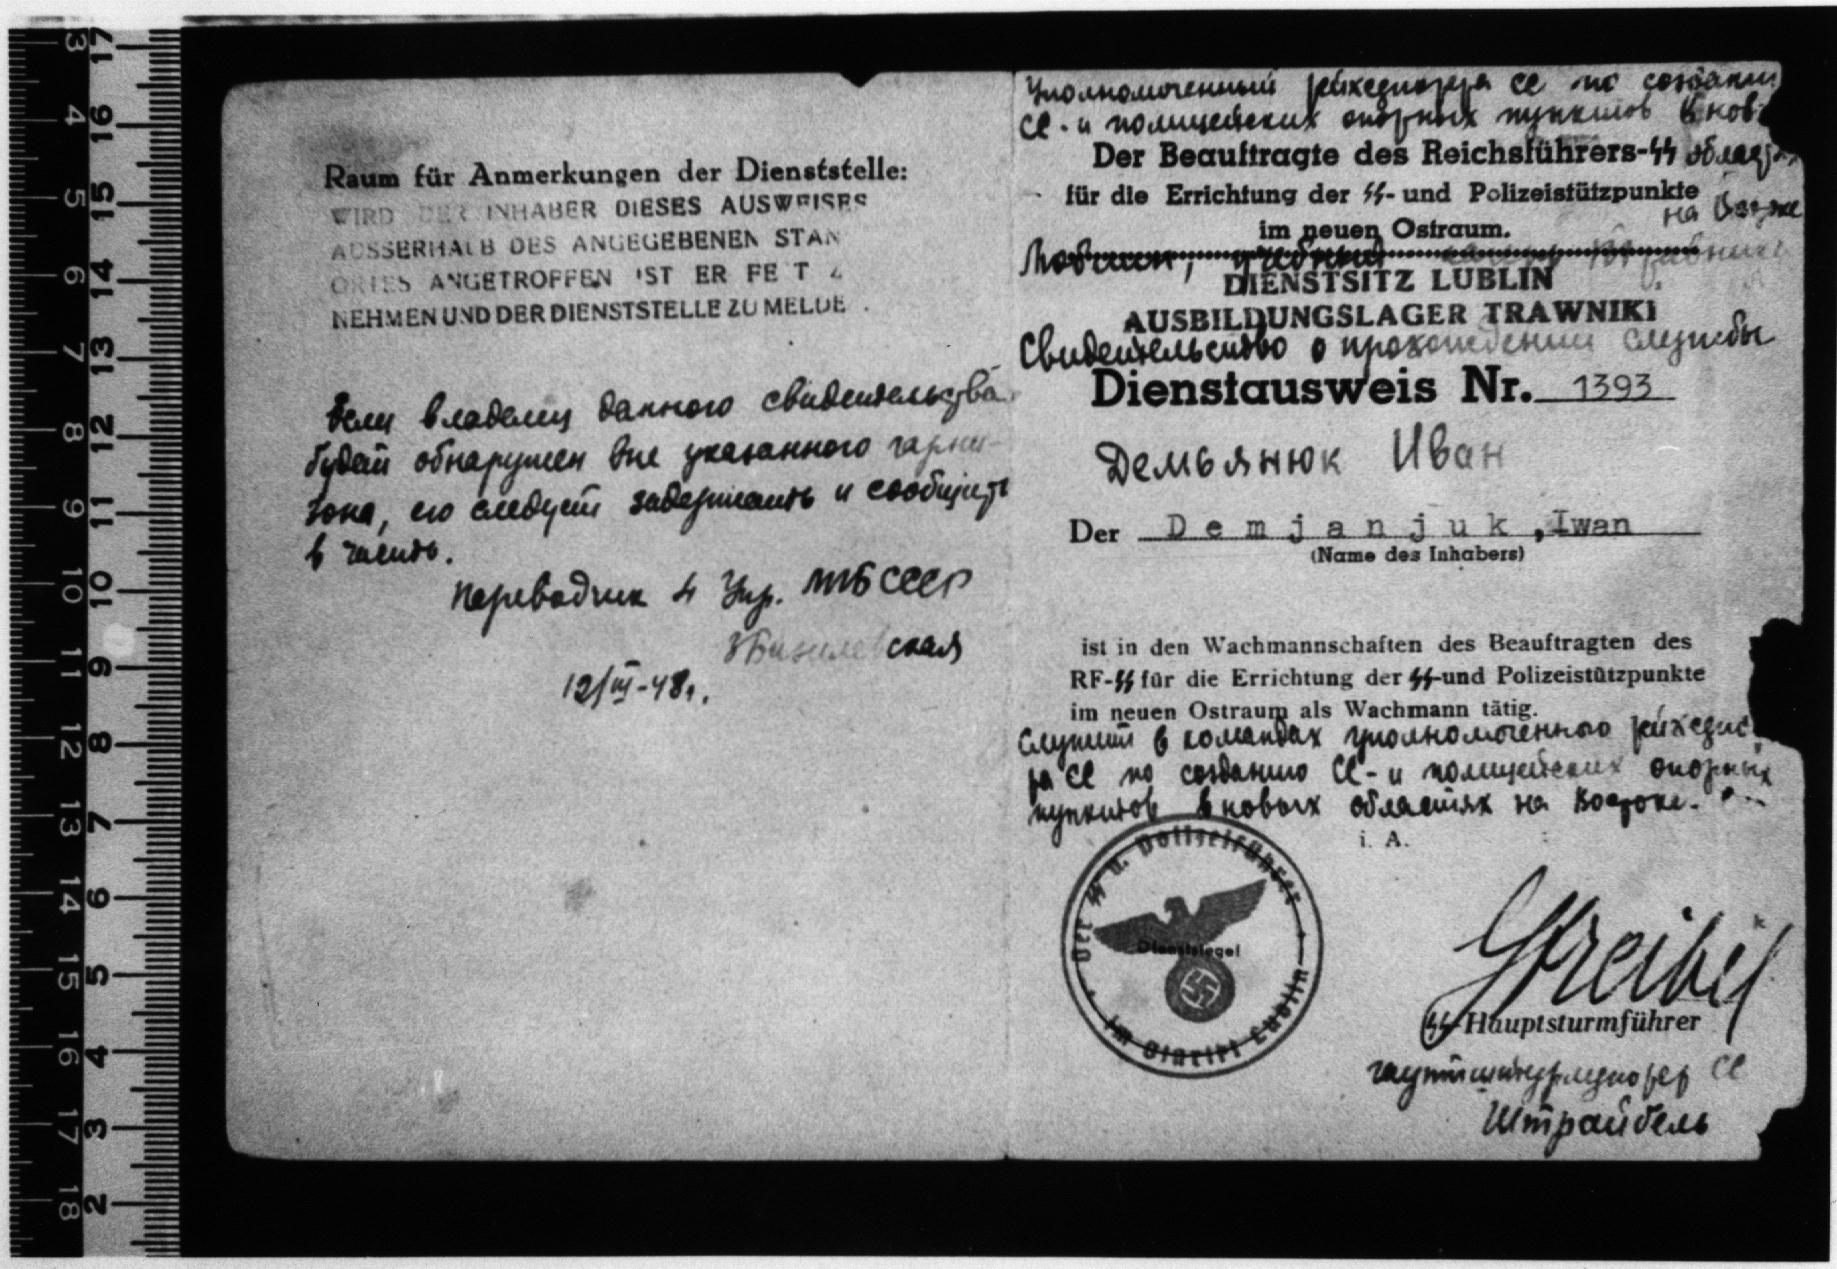 Raum für Anmerkungen der Dienststelle:
WIRD DER INHABER DIESES AUSWEISES
AUSSERHALB DES ANGEGEBENEN STAN
ORTES ANGETROFFEN IST ER FE T Z
NEHMEN UND DER DIENSTSTELLE ZU MELDE .
Если владелец данного свидетельства
будет обнаружен вне указанного гарни-
зона, его следует задержать и сообщить
в часть.
Переводчик 4 Упр. МГБ СССР
12/III-48г.
Уполномоченный рейхсфюрера СС по создан
СС- и полицейских опорных пунктов в нов
Der Beauftragte des Reichsführers-SS
für die Errichtung der SS- und Polizeistützpunkte
на Востоке
im neuen Ostraum.
Люблин, учебный
DIENSTSITZ LUBLIN
AUSBILDUNGSLAGER TRAWNIKI
Свидетельство о прохождении службы
Dienstausweis Nr. 1393
Демьянюк Иван
Der Demjanjuk, Iwan
(Name des Inhabers)
ist in den Wachmannschaften des Beauftragten des
RF-SS für die Errichtung der SS-und Polizeistützpunkte
im neuen Ostraum als Wachmann tätig.
Служит в командах уполномоченного рейхсфюре
ра СС по созданию СС- и полицейских опорных
пунктов в новых областях на Востоке.
i. A.
Der SS u. Polizeiführer
im Distrikt Lublin
Dienstsiegel
Streibel
SS-Hauptsturmführer
гауптштурмфюрер СС
Штрайбель
3 4 5 6 7 8 9 10 11 12 13 14 15 16 17 18
17 16 15 14 13 12 11 10 9 8 7 6 5 4 3 2